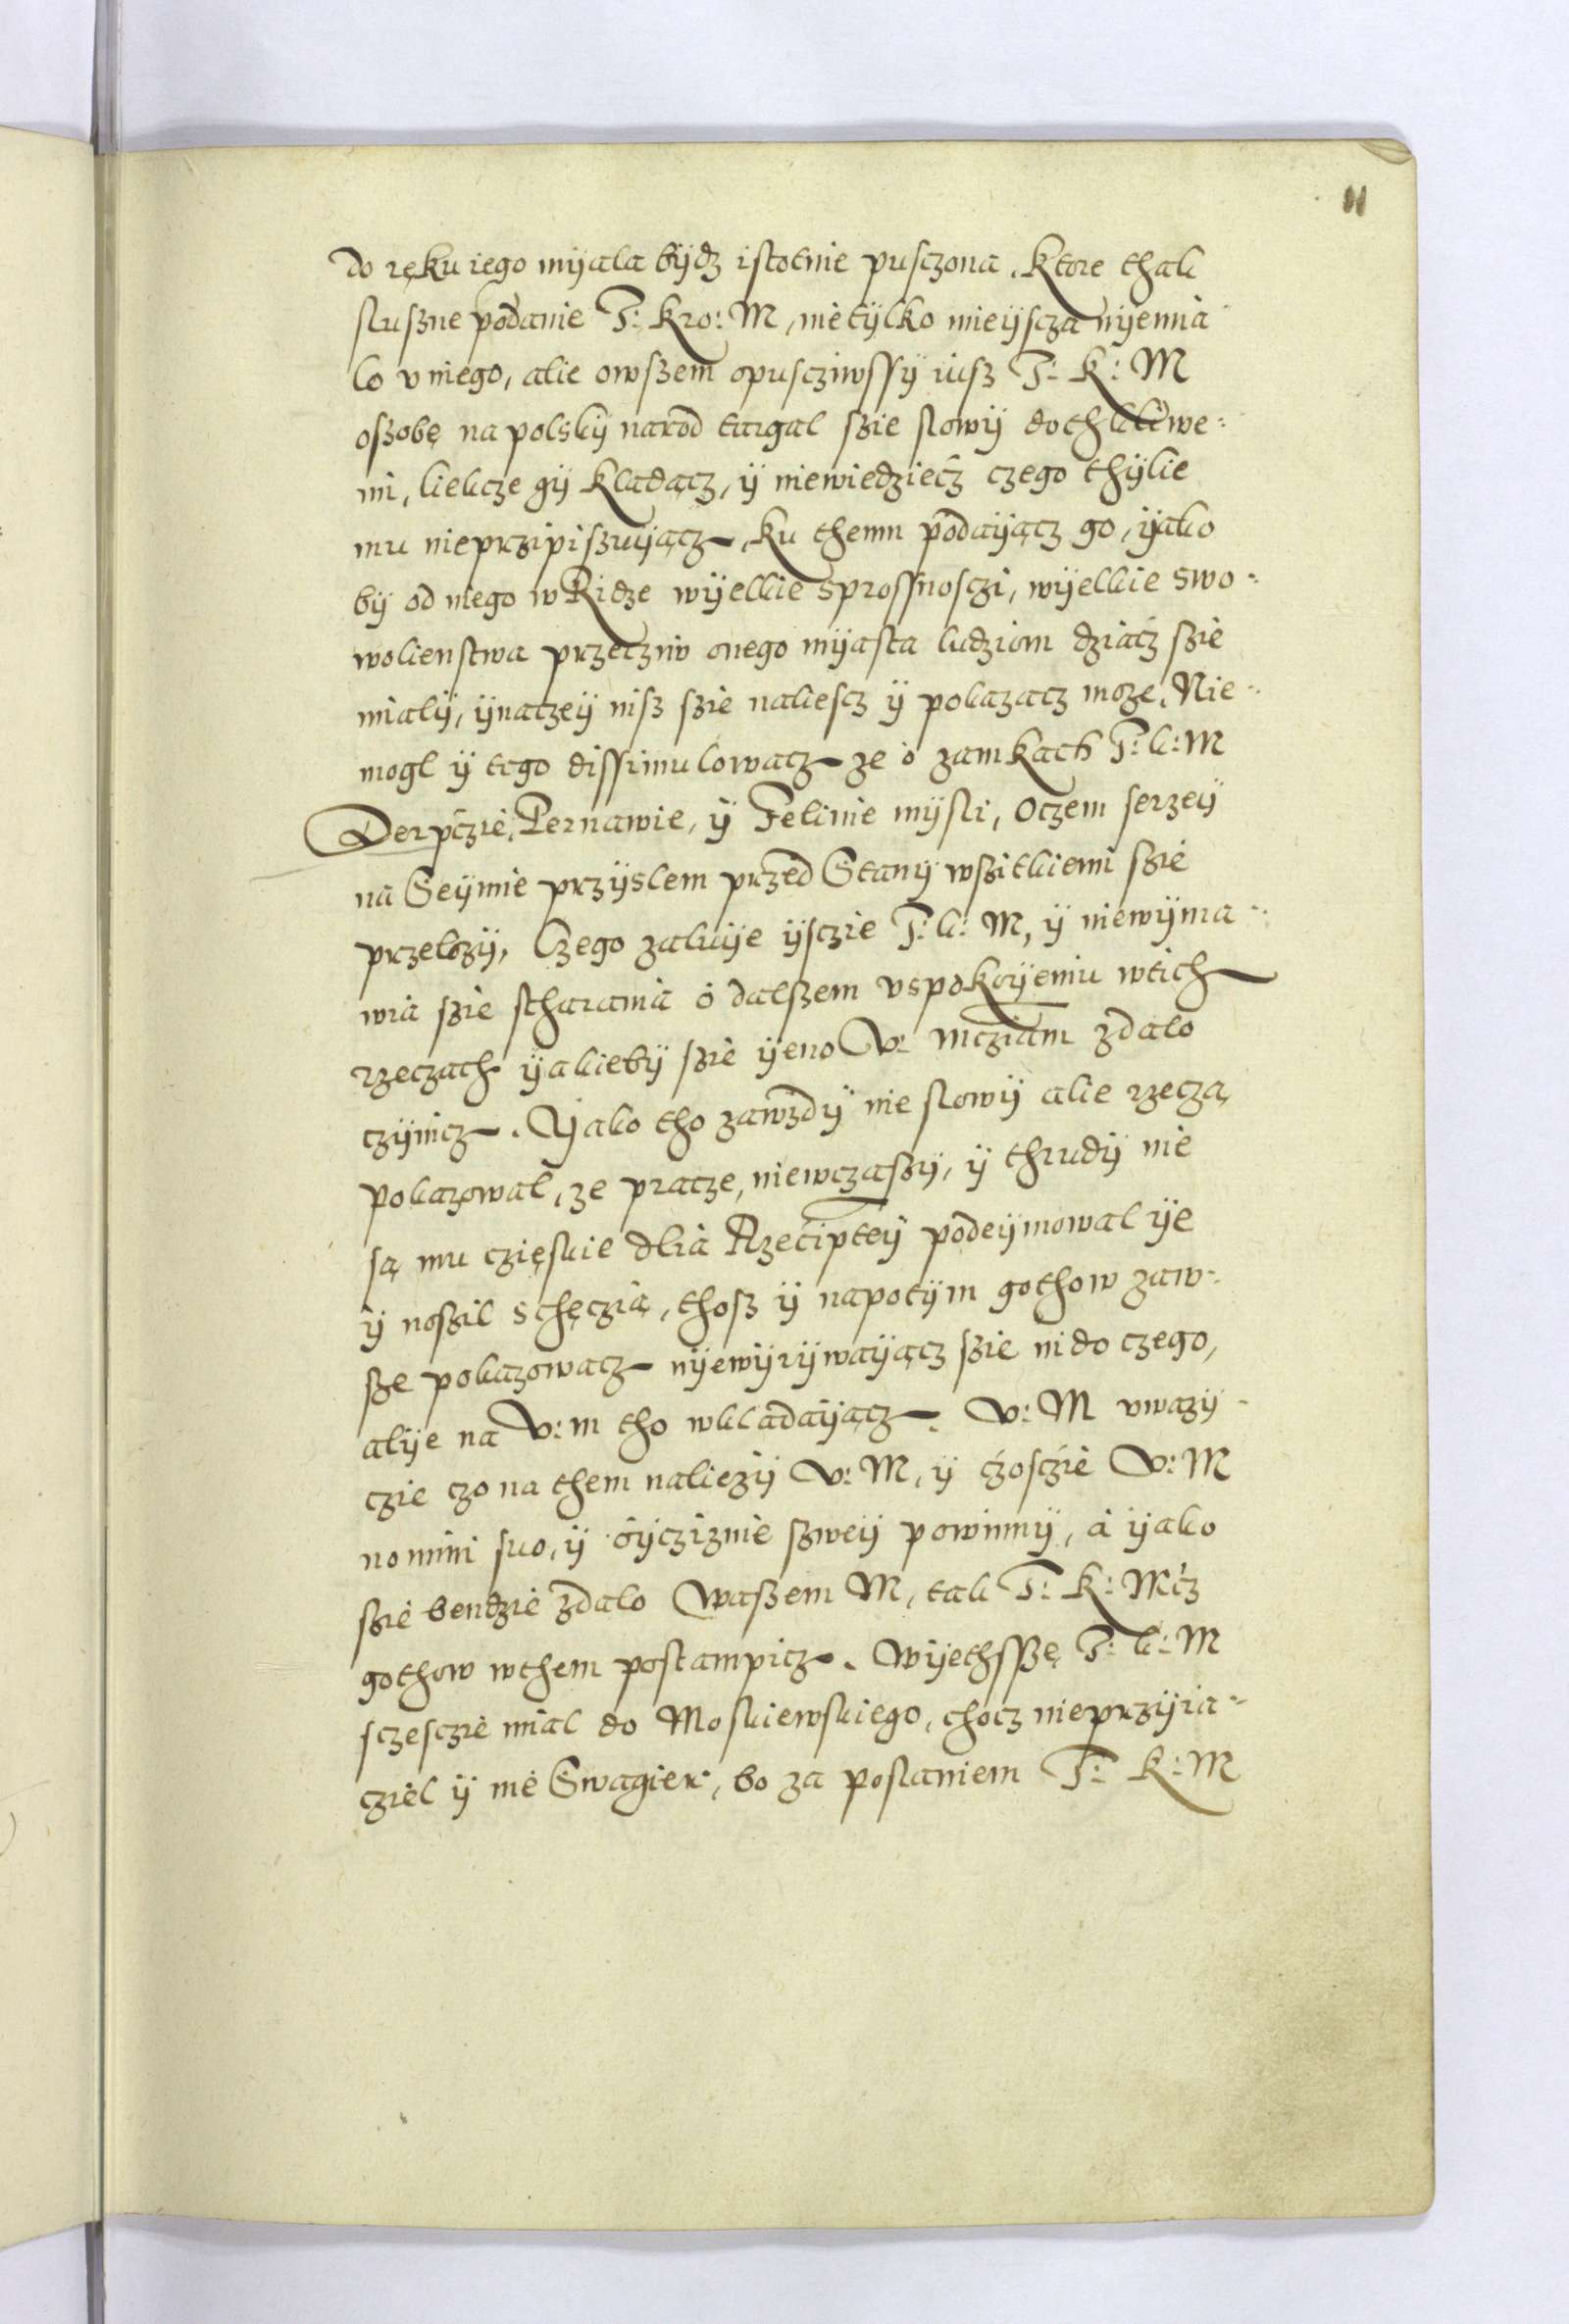 11
do ręku iego mÿala bÿdz istotnie pusczona. Ktore thak
sluszne podanie J: Kro: M, nie tÿlko mieÿscza nÿemia
lo v niego, alie owszem opuscziwssÿ iusz J: K: M
oszobę na polskÿ narod targal szie slowÿ dothkliwe:
mi, lekcze gÿ kladącz, ÿ niewiedziecz czego thÿlie
mu nieprzipiszuÿącz, ku themu podaÿącz go, ÿako
bÿ od niego w Ridze wÿelkie sprossnosczi, wÿelkie swo:
wolienstwa przecziw onego mÿasta ludziom dziacz szie
mialÿ, ÿnaczeÿ nisz szie naliescz ÿ pokazacz moze. Nie:
mogl ÿ tego dissimulowacz ze o zamkach J: k: M
Derpczie, Pernawie, ÿ Felinie mÿsli, Oczem serzeÿ
na Seÿmie przÿslem przed Stanÿ wszitkiemi szie
przelozÿ, Czego zaluÿe ÿsczie J: k: M, ÿ niewÿma:
wia szie scharania o dalszem vspokoÿeniu wtich
rzeczach ÿakiebÿ szie ÿeno V: mcziam zdalo
czÿnicz. Ÿako tho zawzdÿ nie slowÿ alie rzeczą
pokazowal, ze pracze, niewczaszÿ, ÿ thrudÿ nie
są mu czięskie dlia Rzecipteÿ podeÿmowal ÿe
ÿ noszil schęczią, thosz ÿ napotÿm gothow zaw:
sze pokazowacz nÿewÿrÿwaÿącz szie ni do czego,
alÿe na V: m tho wkladaÿącz. V: M vwazÿ
czie czo na them naliezÿ V: M, ÿ czosczie V: M
nomini suo, ÿ oÿcziznie szweÿ powinnÿ, a ÿako
szie bendzie zdalo Waszem M, tak J: K: Mcz
gothow wthem postampicz. Wÿethsszę J: k: M
sczesczie mial do Moskiewskiego, chocz nieprzÿia:
cziel ÿ nie Swagier, bo za poslaniem J: K: M